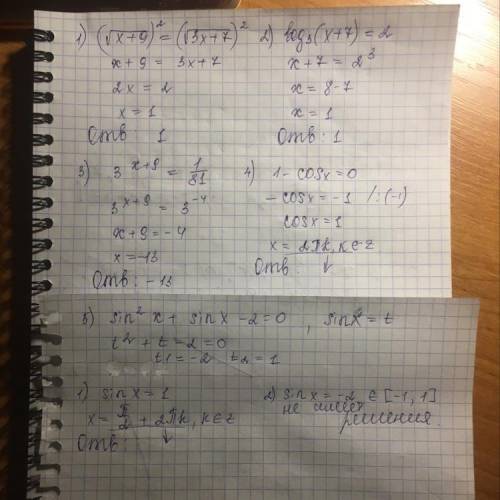 1) (√x+9)² = (√3x+7)²
x+9 = 3x+7
2x = 2
x = 1
Отв 1
2) log₃(x+7) = 2
x+7 = 2³
x = 8-7
x = 1
Отв: 1
3) 3^(x+9) = 1/81
3^(x+9) = 3^(-4)
x+9 = -4
x = -13
Отв: -13
4) 1 - cosx = 0
- cosx = -1 /:(-1)
cosx = 1
x = 2πk, k∈z
Отв: ↓
5) sin² x + sinx - 2 = 0 , sinx = t
t² + t - 2 = 0
t1 = -2 t2 = 1
1) sinx = 1
x = π/2 + 2πk, k∈z
Отв: ↓
2) sinx = -2 ∈ [-1, 1]
не имеет
решения.